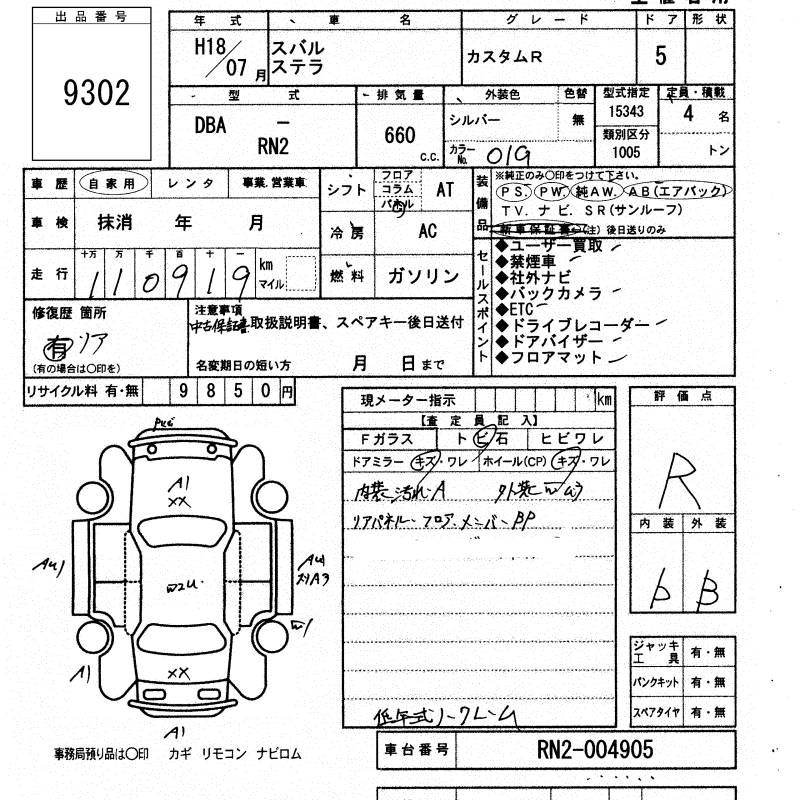 出品番号
9302
年式 車名 グレード ドア 形状
H18/07月 スバル ステラ カスタムR 5
型式 排気量 外装色 色替 型式指定 定員・積載
DBA － RN2 660 c.c. シルバー 無 15343 4名
カラーNo. 019 類別区分 1005 トン
車歴 自家用 レンタ 事業.営業車
シフト フロア コラム パネル AT
装備品 ※純正のみ〇印をつけて下さい。
PS. PW. 純AW. AB(エアバック)
TV. ナビ. SR(サンルーフ)
新車保証書 (注) 後日送りのみ
車検 抹消 年 月
冷房 AC
走行 十万 万 千 百 十 一
110919 km マイル
燃料 ガソリン
セールスポイント
◆ユーザー買取
◆禁煙車
◆社外ナビ
◆バックカメラ
◆ETC
◆ドライブレコーダー
◆ドアバイザー
◆フロアマット
修復歴 箇所
有 リア
(有の場合は〇印を)
注意事項
中古保証書 取扱説明書、スペアキー後日送付
名変期日の短い方 月 日まで
リサイクル料 有・無 9850円
現メーター指示 km
【査定員記入】
Fガラス トビ石 ヒビワレ
ドアミラー キズ・ワレ ホイール(CP) キズ・ワレ
内装汚れA
リアパネル・フロア・メンバーPP
低年式ノークレーム
評価点
R
内装 外装
b B
ジャッキ工具 有・無
パンクキット 有・無
スペアタイヤ 有・無
A1
XX
AU1
W2U
AU
W1
A1
XX
A1
事務局預り品は〇印 カギ リモコン ナビロム
車台番号 RN2-004905